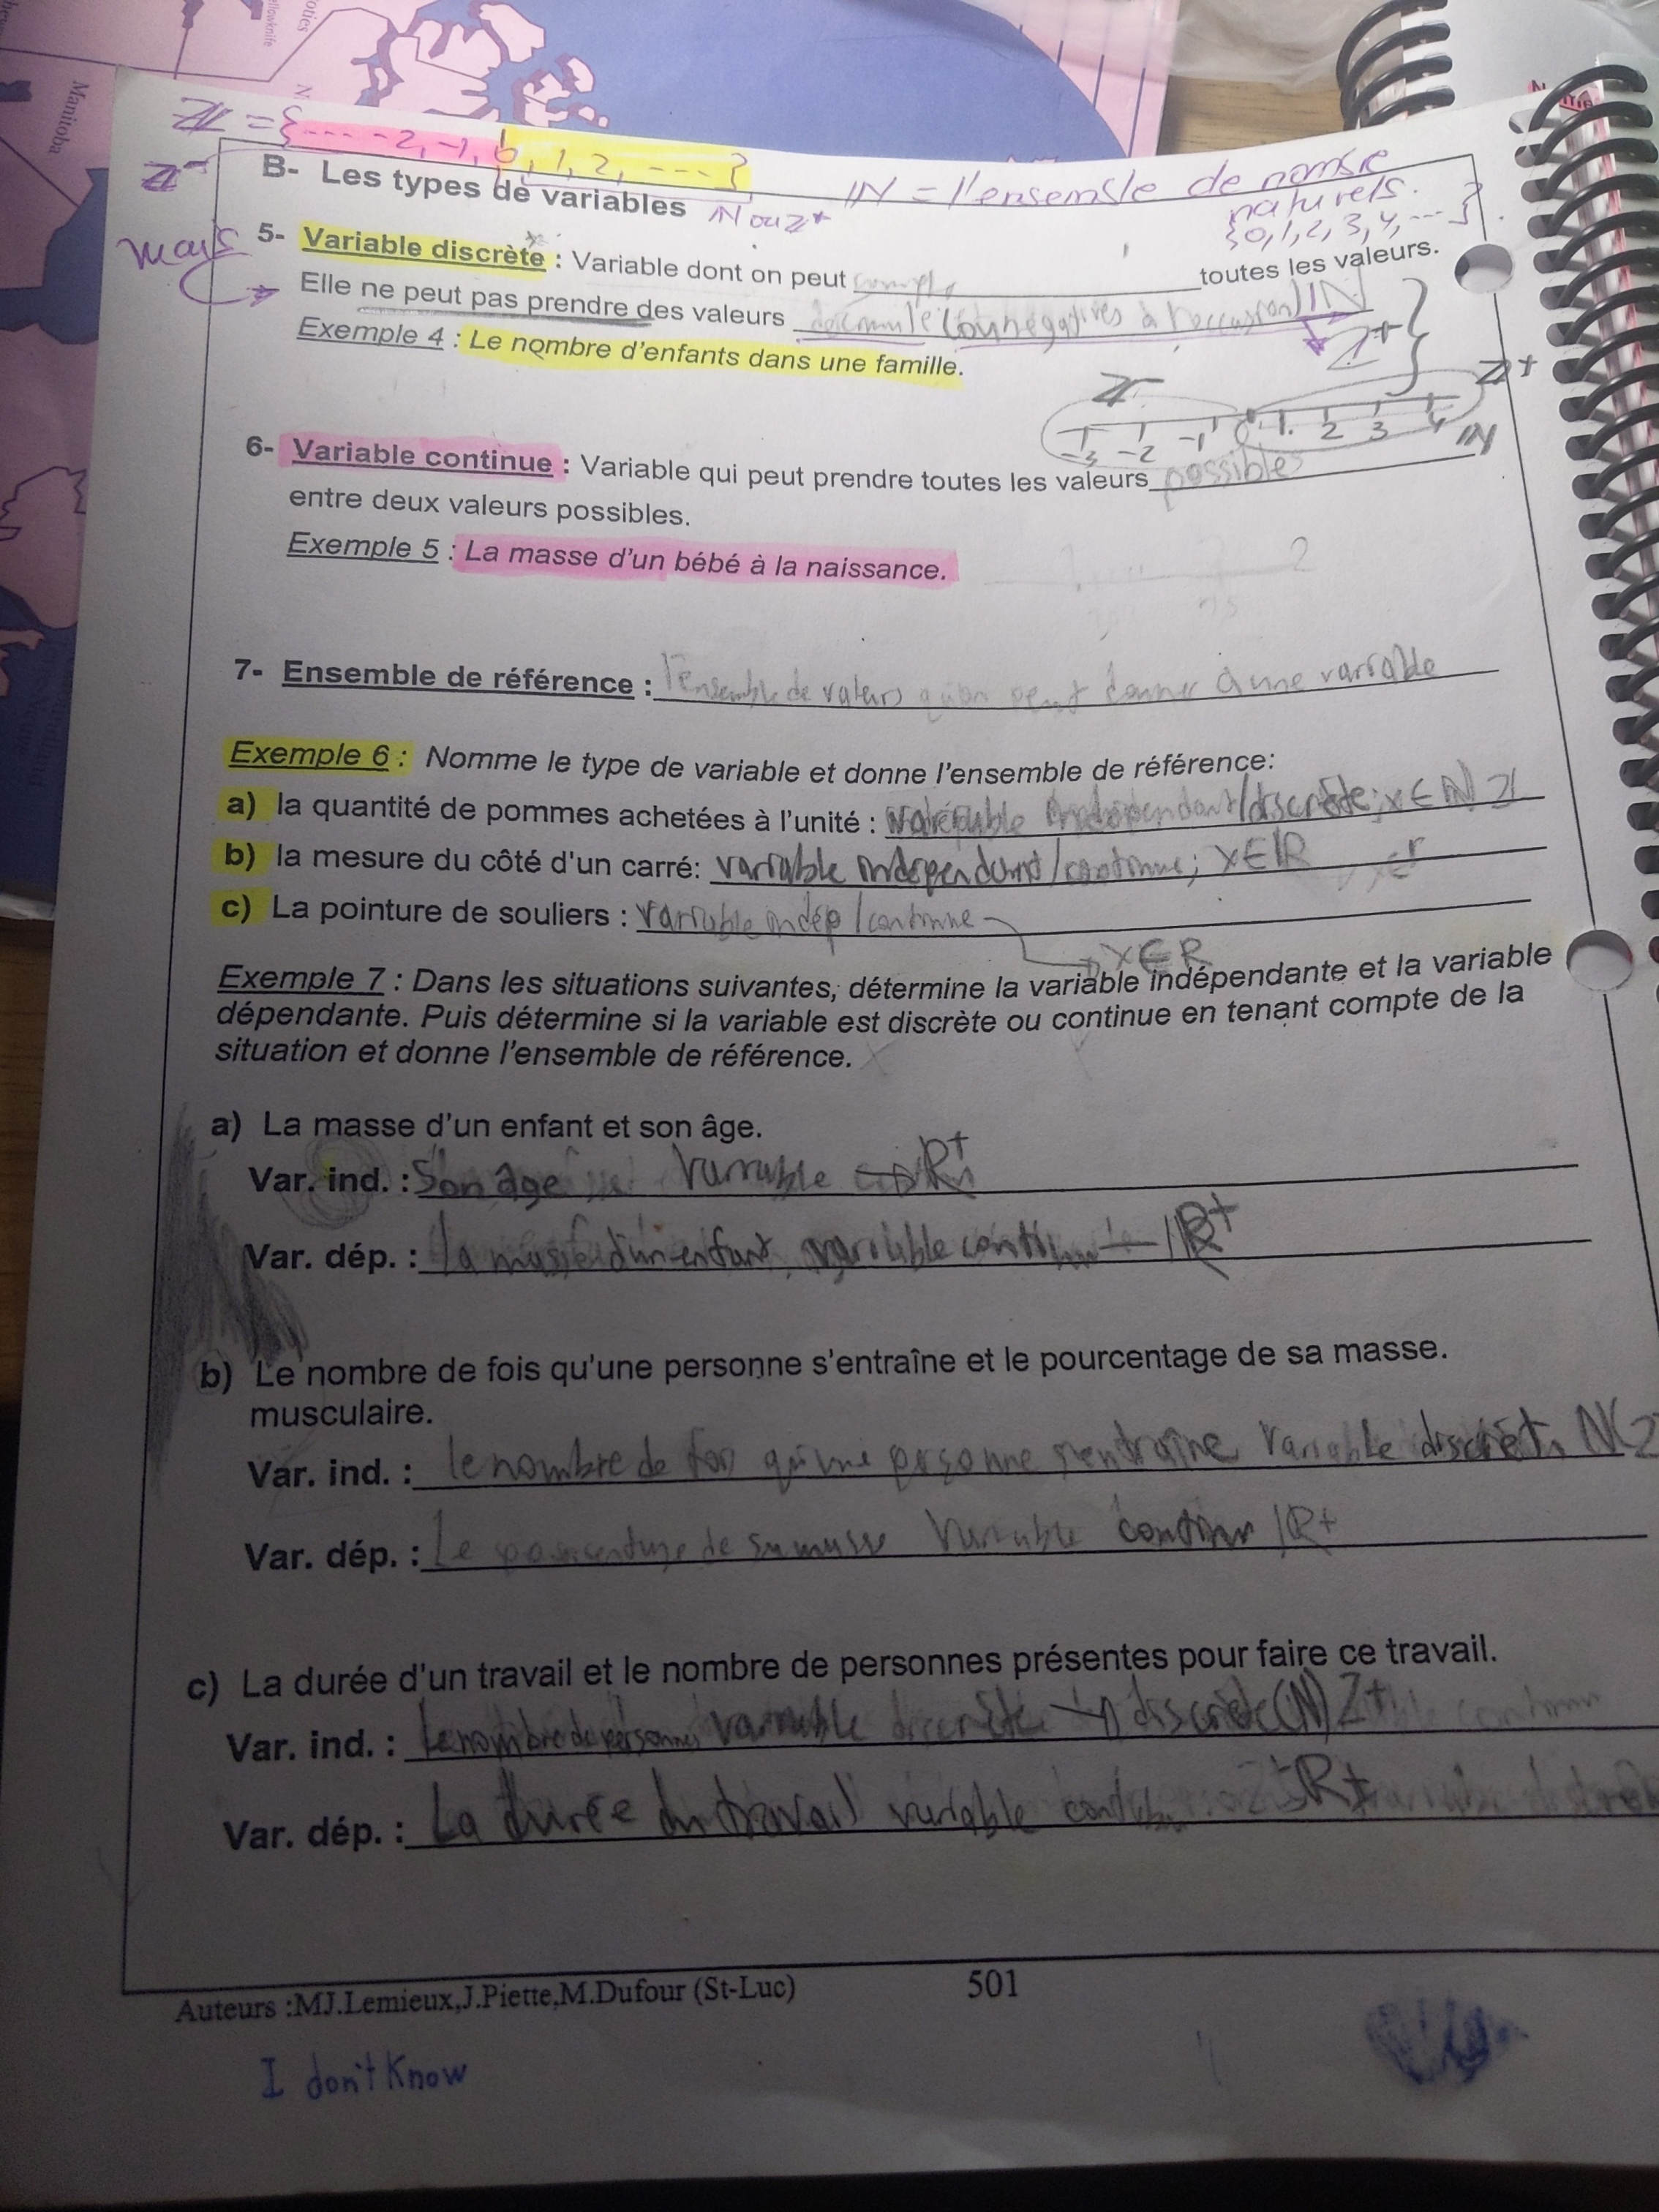 Manitoba
ℤ = {... -2, -1, 0, 1, 2, ...}
ℤ⁻
ℕ ou ℤ⁺
ℕ = l'ensemble de nombre
naturels.
{0, 1, 2, 3, 4, ...}.
B- Les types de variables
mais
5- Variable discrète : Variable dont on peut toutes les valeurs.
Elle ne peut pas prendre des valeurs (ou négatives à l'occasion) ℕ
ℤ⁺
Exemple 4 : Le nombre d'enfants dans une famille.
ℤ⁻ ℤ⁺
-3 -2 -1 0 1 2 3 4 ℕ
6- Variable continue : Variable qui peut prendre toutes les valeurs possibles
entre deux valeurs possibles.
Exemple 5 : La masse d'un bébé à la naissance.
2
7- Ensemble de référence : l'ensemble de valeurs qu'on peut donner à une variable
Exemple 6 : Nomme le type de variable et donne l'ensemble de référence:
a) la quantité de pommes achetées à l'unité : variable /discrète; x ∈ ℕ
b) la mesure du côté d'un carré: variable independant/continue; x ∈ ℝ
c) La pointure de souliers : variable indép/continue
x ∈ R
Exemple 7 : Dans les situations suivantes, détermine la variable indépendante et la variable
dépendante. Puis détermine si la variable est discrète ou continue en tenant compte de la
situation et donne l'ensemble de référence.
a) La masse d'un enfant et son âge.
Var. ind. : Son âge variable R⁺
Var. dép. : la masse d'un enfant, variable continu ℝ⁺
b) Le nombre de fois qu'une personne s'entraîne et le pourcentage de sa masse.
musculaire.
Var. ind. : le nombre de fois qu'une personne s'entraîne variable discrèt
Var. dép. : Le pourcentage de sa masse variable continu ℝ+
c) La durée d'un travail et le nombre de personnes présentes pour faire ce travail.
Var. ind. : Le nombre de personnes variable discrète discrète (ℕ) Z+
Var. dép. : La durée du travail variable R+
Auteurs :MJ.Lemieux,J.Piette,M.Dufour (St-Luc) 501
I don't Know